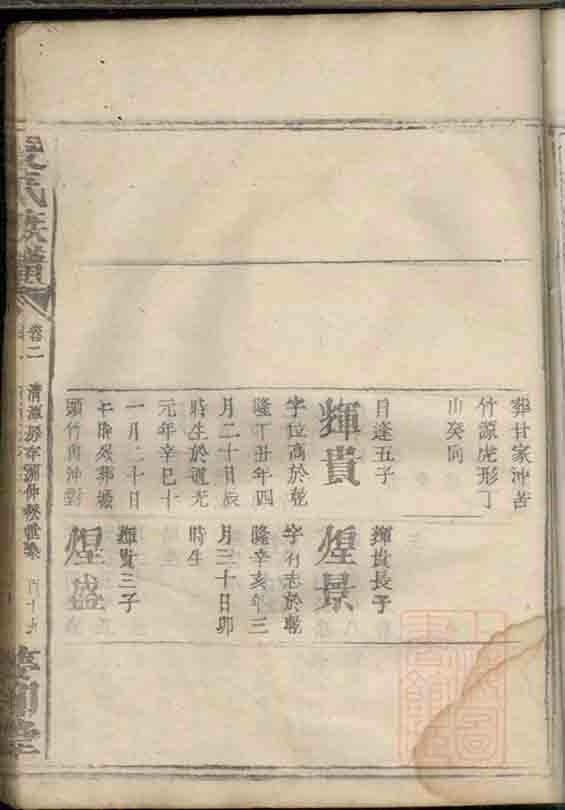 葬甘家沖苦
竹源虎形丁
山癸向
日逢五子
輝貴
字位高於乾
隆丁丑年四
月二十日辰
時生於道光
元年辛巳十
一月二十日
午時歿葬塘
頭竹
沖對
輝貴長子
煋景
字行志於乾
隆辛亥年三
月三十日卯
時生
輝貴三子
煋盛
氏族譜
卷二
百十九
上海圖書館藏